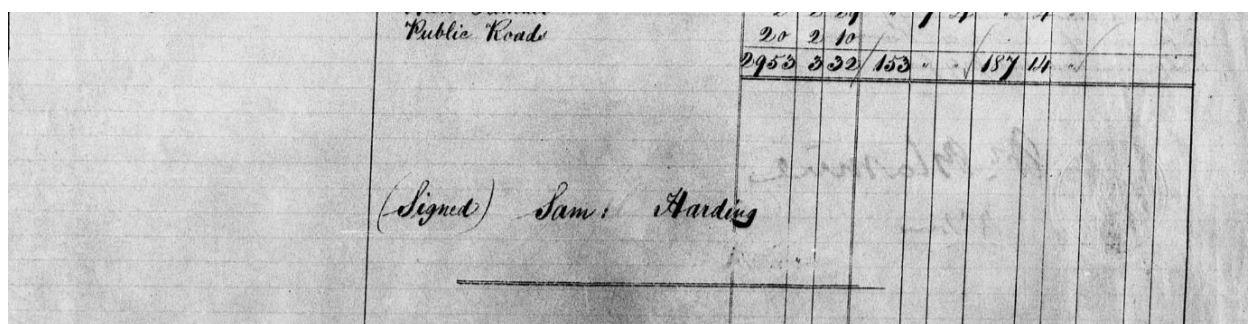 Public Roads 20 2 10
2953 3 32 153 " " 187 14 "
(Signed) Sam: Harding